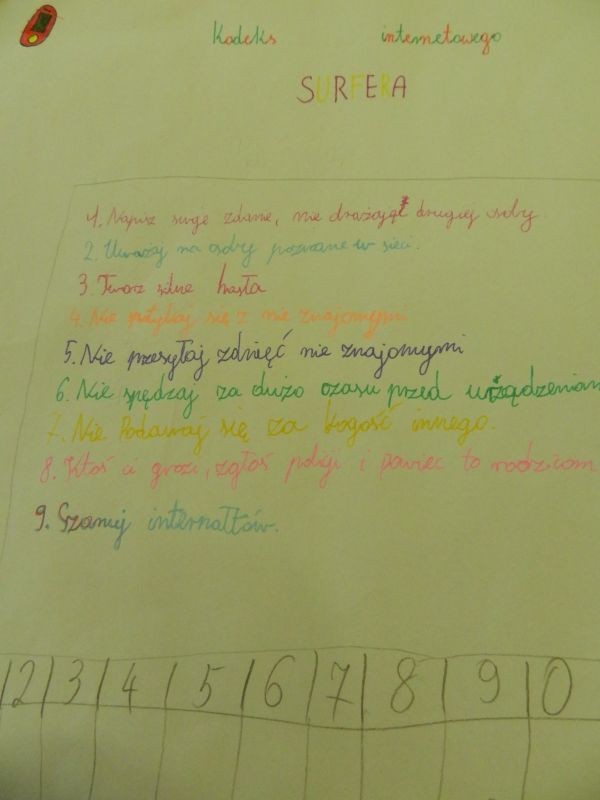 Kodeks internetowego
SURFERA
1. Napisz swoje zdanie, nie drażając drugiej osoby.
2. Uważaj na osoby poznane w sieci.
3. Twórz silne hasła
4. Nie spotykaj się z nie znajomymi
5. Nie przesyłaj zdnięć nie znajomymi
6. Nie spędzaj za dużo czasu przed urządzeniam
7. Nie Podawaj się za kogość innego.
8. Ktoś ci grozi, zgłoś policji i powiec to rodzicom
9. Szanuj internałtów.
2 3 4 5 6 7 8 9 0